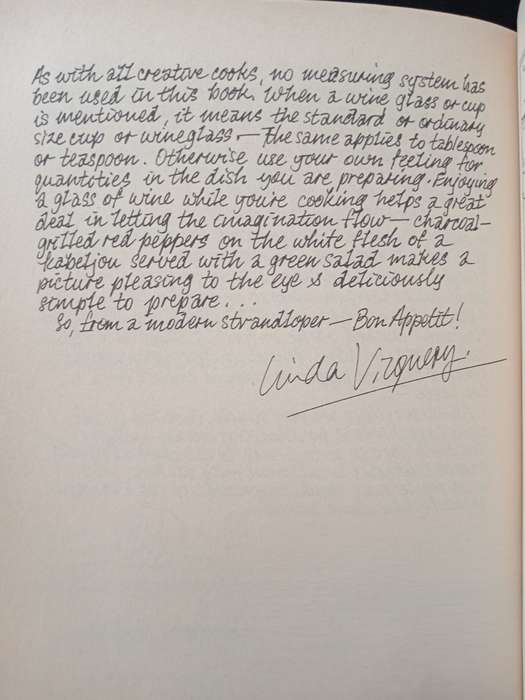 As with all creative cooks, no measuring system has
been used in this book. When a wine glass or cup
is mentioned, it means the standard or ordinary
size cup or wineglass — the same applies to tablespoon
or teaspoon. Otherwise use your own feeling for
quantities in the dish you are preparing. Enjoying
a glass of wine while you're cooking helps a great
deal in letting the imagination flow — charcoal-
grilled red peppers on the white flesh of a
kabeljou served with a green salad makes a
picture pleasing to the eye & deliciously
simple to prepare...
So, from a modern strandloper — Bon Appetit!
Linda Visquery.